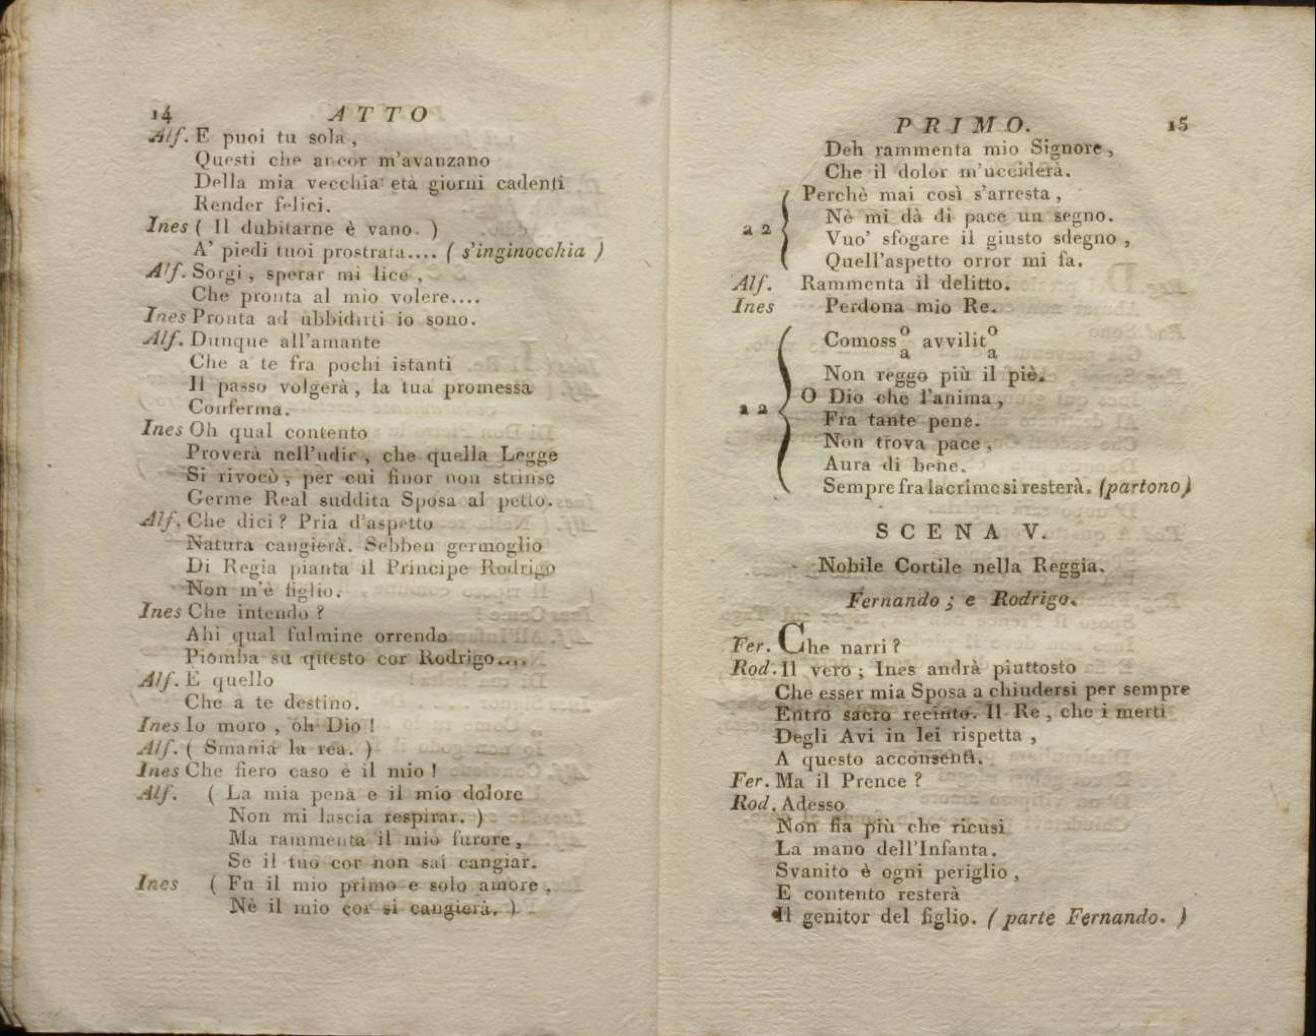 14 ATTO
Alf. E puoi tu sola,
Questi che ancor m'avanzano
Della mia vecchia età giorni cadenti
Render felici.
Ines ( Il dubitarne è vano. )
A' piedi tuoi prostrata.... ( s'inginocchia )
Alf. Sorgi, sperar mi lice,
Che pronta al mio volere....
Ines Pronta ad ubbidirti io sono.
Alf. Dunque all'amante
Che a te fra pochi istanti
Il passo volgerà, la tua promessa
Conferma.
Ines Oh qual contento
Proverà nell'udir, che quella Legge
Si rivocò, per cui finor non strinse
Germe Real suddita Sposa al petto.
Alf. Che dici? Pria d'aspetto
Natura cangierà. Sebben germoglio
Di Regia pianta il Principe Rodrigo
Non m'è figlio.
Ines Che intendo?
Ahi qual fulmine orrendo
Piomba su questo cor Rodrigo....
Alf. È quello
Che a te destino.
Ines Io moro, oh Dio!
Alf. ( Smania la rea. )
Ines Che fiero caso è il mio!
Alf. ( La mia pena e il mio dolore
Non mi lascia respirar. )
Ma rammenta il mio furore,
Se il tuo cor non sai cangiar.
Ines ( Fu il mio primo e solo amore,
Nè il mio cor si cangierà. )
PRIMO. 15
Deh rammenta mio Signore,
Che il dolor m'ucciderà.
Perchè mai così s'arresta,
Nè mi dà di pace un segno.
a 2 Vuo' sfogare il giusto sdegno,
Quell'aspetto orror mi fa.
Alf. Rammenta il delitto.
Ines Perdona mio Re.
Comoss o a avvilit o a
Non reggo più il piè.
a 2 O Dio che l'anima,
Fra tante pene.
Non trova pace,
Aura di bene.
Sempre fra lacrime si resterà. (partono)
SCENA V.
Nobile Cortile nella Reggia.
Fernando; e Rodrigo.
Fer. Che narri?
Rod. Il vero; Ines andrà piuttosto
Che esser mia Sposa a chiudersi per sempre
Entro sacro recinto. Il Re, che i merti
Degli Avi in lei rispetta,
A questo acconsentì.
Fer. Ma il Prence?
Rod. Adesso
Non fia più che ricusi
La mano dell'Infanta.
Svanito è ogni periglio,
E contento resterà
Il genitor del figlio. ( parte Fernando. )